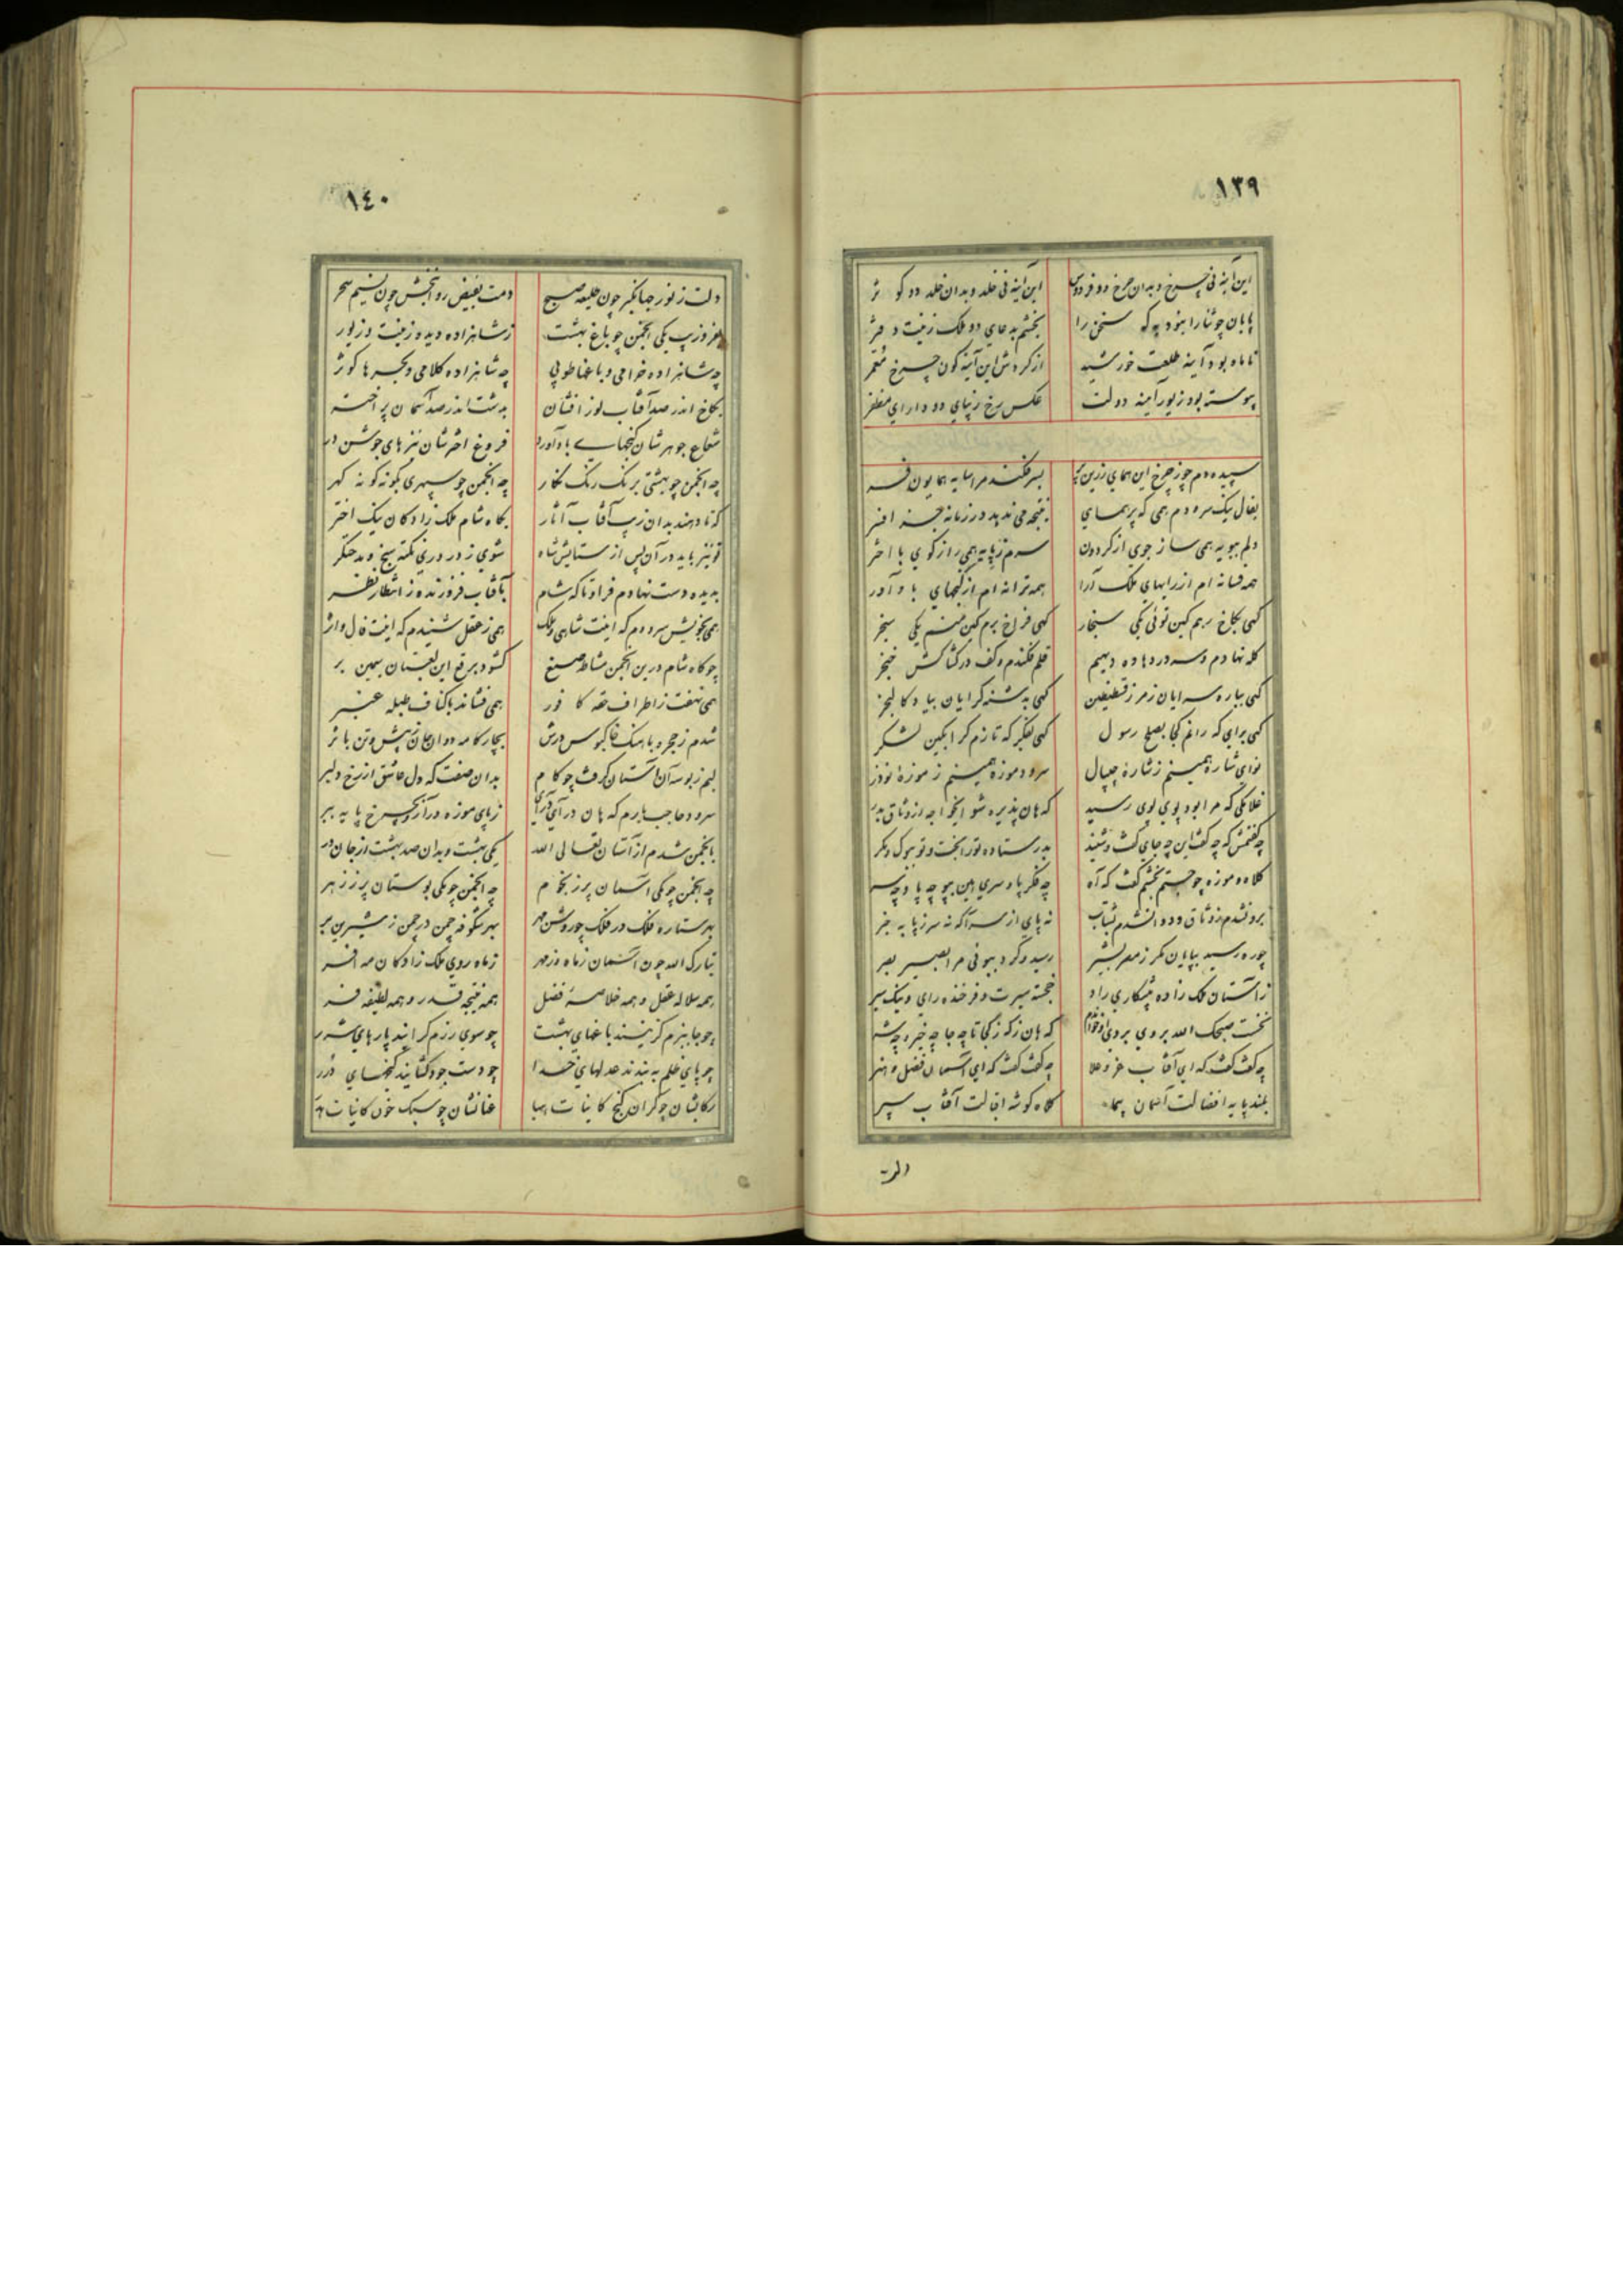 ١٣٩
این آینه نی چرخ و بدان چرخ دو فردوس این آینه نی خلد و بدان خلد دو کوثر
پایان چو ثنا را نبود به که سخن را بخشم به دعای دو ملک زینت و فر
تا ماه بود آینه طلعت خورشید از گردش این آینه گون چرخ مقمر
پیوسته بود زیور آینه دولت عکس رخ زیبای دو دارای مظفر
سپیده دم چو ز چرخ این همای زرین پر بسر فکند مرا سایه همایون فر
بفال نیک سرودم همی که پر همای نتیجه می ندهد در زمانه جز افسر
دلم بپویه همی ساز جوی از گردون سرم ز پایه همی راز گوی با اختر
همه فسانه ام از رایهای ملک آرا همه ترانه ام از گنجهای باد آور
گهی بکاخ رهم کین توئی یکی سنجار گهی فراخ برم کین منم یکی سنجر
کله نهادم و سر در دهاده دیهیم قلم فکندم و کف در کشاکش خنجر
گهی بباره سرایان ز مرز قسطنطین گهی به دشنه گرایان بیاد کالنجر
گهی برای که رانم کجا بصلح رسول گهی بفکر که تازم کرا بکین لشکر
نوای شاره همیسنم ز شاره جیپال سرود موزه همیسنم ز موزه نوذر
غلامکی که مرا بود پوی پوی رسید که هان پذیره شو ایخواجه از وثاق بدر
چه گفتمش که چه گفت این چه جای گفت و شنید بدر ستاده تو را بخت و تو ببوک و مگر
کلاه و موزه چو جستم بخشم گفت که آه چه فکر پا و سری هین بپو چه پا و چه سر
برون شدم ز وثاق و دوان شدم بشتاب نه پای از سر آگه نه سر ز پا به خبر
چو ره رسید بپایان مگر ز مصر بشیر رسید و کرد ببوئی مرا بصیر بصر
ز آستان ملک زاده پیشکاری راد خجسته سیرت و فرخنده رای و نیک سیر
نخست صبحک الله بروی بروی او خواندم که هان ز که ز کجا تا چه جا چه خبر و چه شر
چه گفت گفت که ای آفتاب عز و علا چه گفت گفت که ای آسمان فضل و هنر
بلند پایه افضالت آسمان پیما کلاه گوشه اقبالت آفتاب سپر
دلت
١٤٠
دلت ز نور جهانگیر چون طلیعه صبح دمت بفیض روانبخش چون نسیم سحر
بفر و زیب یکی انجمن چو باغ بهشت ز شاهزاده دیده و زینت و زیور
چه شاهزاده خرامی و باغها طوبی چه شاهزاده کلامی و بحرها کوثر
بکاخ اندر صد آفتاب نور افشان به دشت اندر صد آسمان پر اختر
شعاع جوهرشان گنجهای باد آورد فروغ اخترشان نیزهای جوشن در
چه انجمن چو بهشتی برنگ رنگ نگار چه انجمن چو سپهری بگونه گونه گهر
که تا دهند بدان زیب آفتاب آثار بگاه شام ملک زادگان نیک اختر
تو نیز باید در آن پس از ستایش شاه شوی ز در دری نکته سنج و مدحتگر
بدیده دست نهادم فراد تا که شام بآفتاب فروزنده ز انتظار نظر
همی بخویش سرودم که اینت شاهی و ملک همی ز عقل شنیدم که اینت فال و اثر
چو گاه شام درین انجمن مشاطه صنع گشود برقع این لعبتان سیمین بر
همی نهفت ز اطراف حقه کافور همی فشاند باکناف طبله عنبر
شدم ز حجره باهنگ خاکبوس درش بچار گامه دوان جان پیش و تن باثر
لبم ز بوسه آن آستان گرفت چو کام بدان صفت که دل عاشق از رخ دلبر
سرود حاجب بارم که هان در آی در آی ز پای موزه در آر و بچرخ پایه ببر
بانجمن شدم از آستان تعالی الله یکی بهشت و بدان صد بهشت از جان در
چه انجمن چو یکی آسمان پر ز نجوم چه انجمن چو یکی بوستان پر ز زهر
بهر ستاره فلک در فلک چو روشن مهر بهر شکوفه چمن در چمن ز شیرین بر
تبارک الله چون آسمان ز ماه و ز مهر ز ماه روی ملک زادگان مه افسر
همه سلاله عقل و همه خلاصه فضل همه نتیجه قدر و همه لطیفه فر
چو جا ببزم گزینند باغهای بهشت چو سوی رزم گرایند پارهای شرر
چو پای ظلم به بندند عدلهای خدا چو دست جود گشایند گنجهای درر
رکابشان چو گران گنج کاینات هبا عنانشان چو سبک خون کاینات هدر